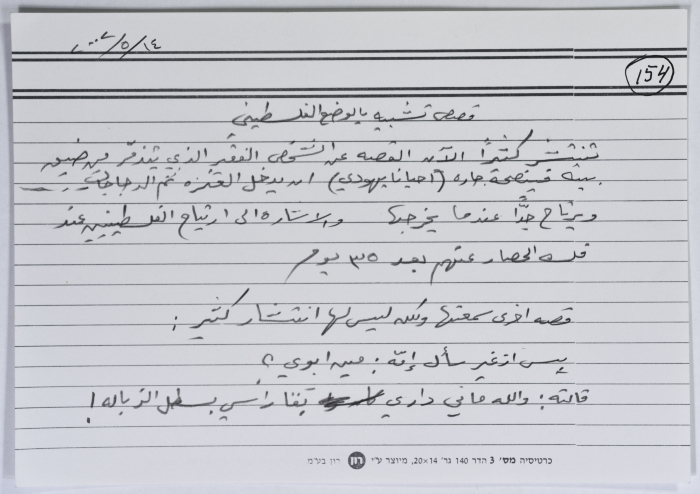 ٢٠٠٢/٥/١٤
154
قصص تشبيه بالوضع الفلسطيني
تنتشر كثيرًا الآن القصه عن الشخص الفقير الذي يتذمّر من ضيق
بيته فينصحه جاره (احيانا يهودي) ان يدخل العنزه ثم الدجاجات
ويرتاح جدًّا عندما يخرجها والاشاره الى ارتياح الفلسطينيين عند
فك الحصار عنهم بعد ٣٥ يوم
قصه اخرى سمعتها ولكن ليس لها انتشار كثير :
بِس ازغير سأل إمّه : مين ابوي ؟
قالتله : والله ماني داري راسي بسطل الزباله !
כרטיסיה מס' 3 הדר 140 גר' 14×20, מיוצר ע"י רון רון בע"מ